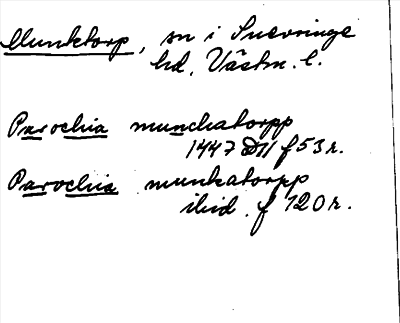 Munktorp, sn i Snevringe
hd, Västm. l.
Parochia munchatorpp
1447 f 53 r.
Parochia munkatorpp
ibid. f 120 r.